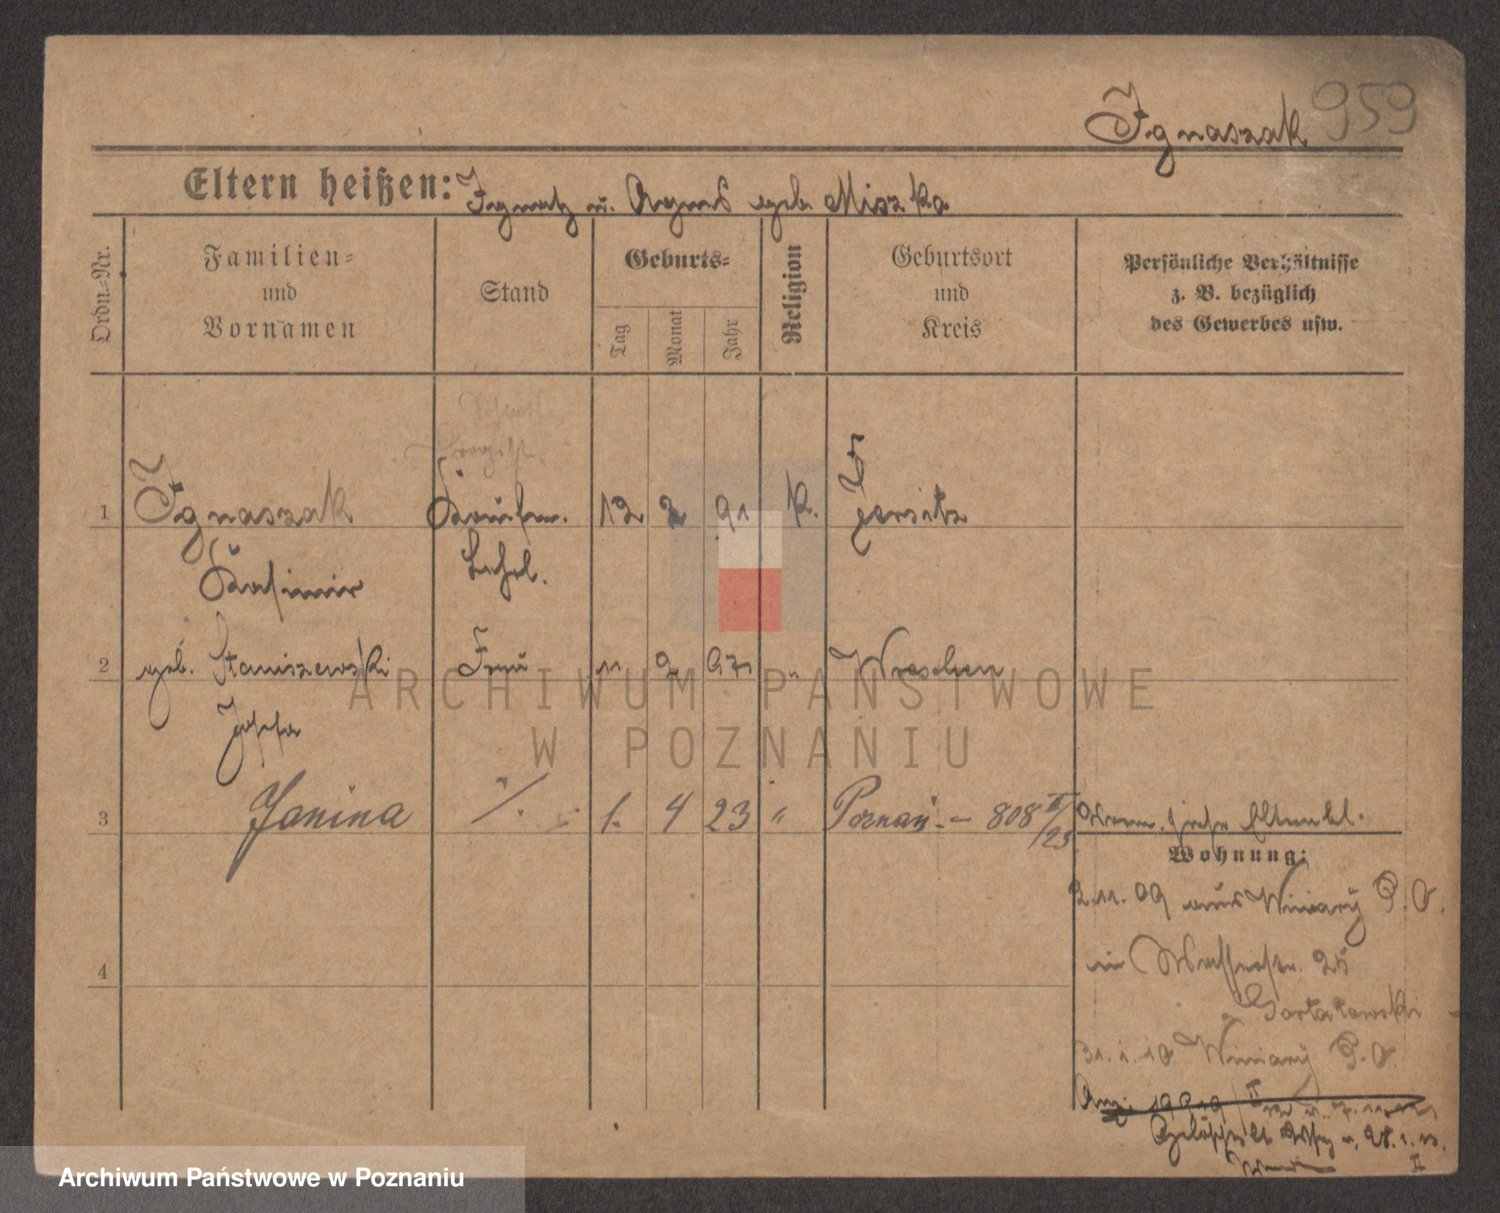 Ignaszak 959
Eltern heißen: Ignatz u. Agnes geb Miszka
Ordn.-Nr.
Familien-
und
Vornamen
Stand
Geburts-
Tag
Monat
Jahr
Religion
Geburtsort
und
Kreis
Persönliche Verhältnisse
z. B. bezüglich
des Gewerbes usw.
1 Ignaszak Kaufm. 12 2 91 k. Jersitz
Kasimir Lehrl.
2 geb. Staniszewski Frau 11 2 97 " Wreschen
Josefa
3 Janina ./. 1. 4 23 " Poznań. — 808 II/23
Wohnung:
2.11.09 aus Winiary P. O.
in 25
4
31.1.10 Winiary P. O.
28.1.
II
ARCHIWUM PAŃSTWOWE
W POZNANIU
Archiwum Państwowe w Poznaniu